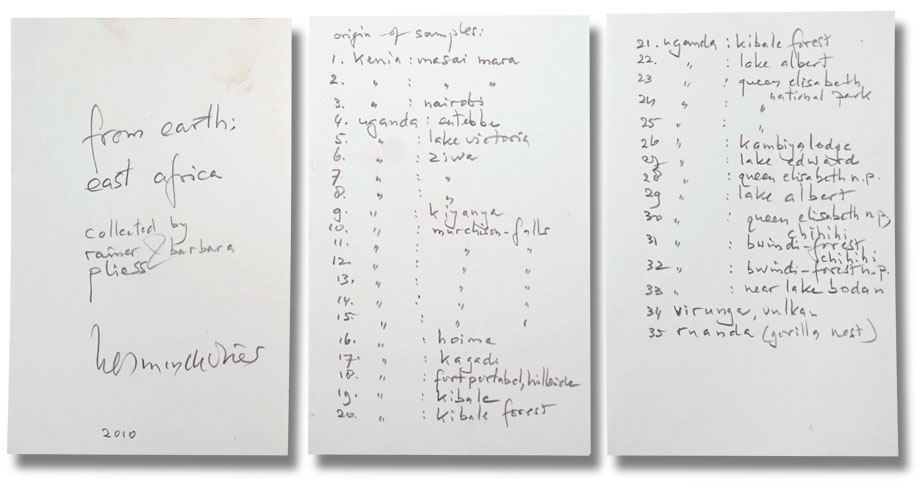 from earth:
east africa
collected by
rainer & barbara
pliess
herman de vries
2010
origin of samples:
1. Kenia : masai mara
2. " : " "
3. " : nairobi
4. uganda : entebbe
5. " : lake victoria
6. " : ziwa
7. " : "
8. " : "
9. " : kiyanya
10. " : murchison-falls
11. " : " "
12. " : " "
13. " : " "
14. " : " "
15. " : " "
16. " : hoima
17. " : kagadi
18. " : fort portabel, hillside
19. " : kibale
20. " : kibale forest
21. uganda : kibale forest
22. " : lake albert
23 " : queen elisabeth
national park
24 " : "
25 " : "
26 " : kambiya lodge
27 " : lake edward
28 " : queen elisabeth n.p.
29 " : lake albert
30 " : queen elisabeth n.p,
chihihi
31 " : bwindi-forest
chihihi
32 " : bwindi-forest n.p.
33 " : near lake bodan
34 virunga, vulkan
35 ruanda (gorilla nest)